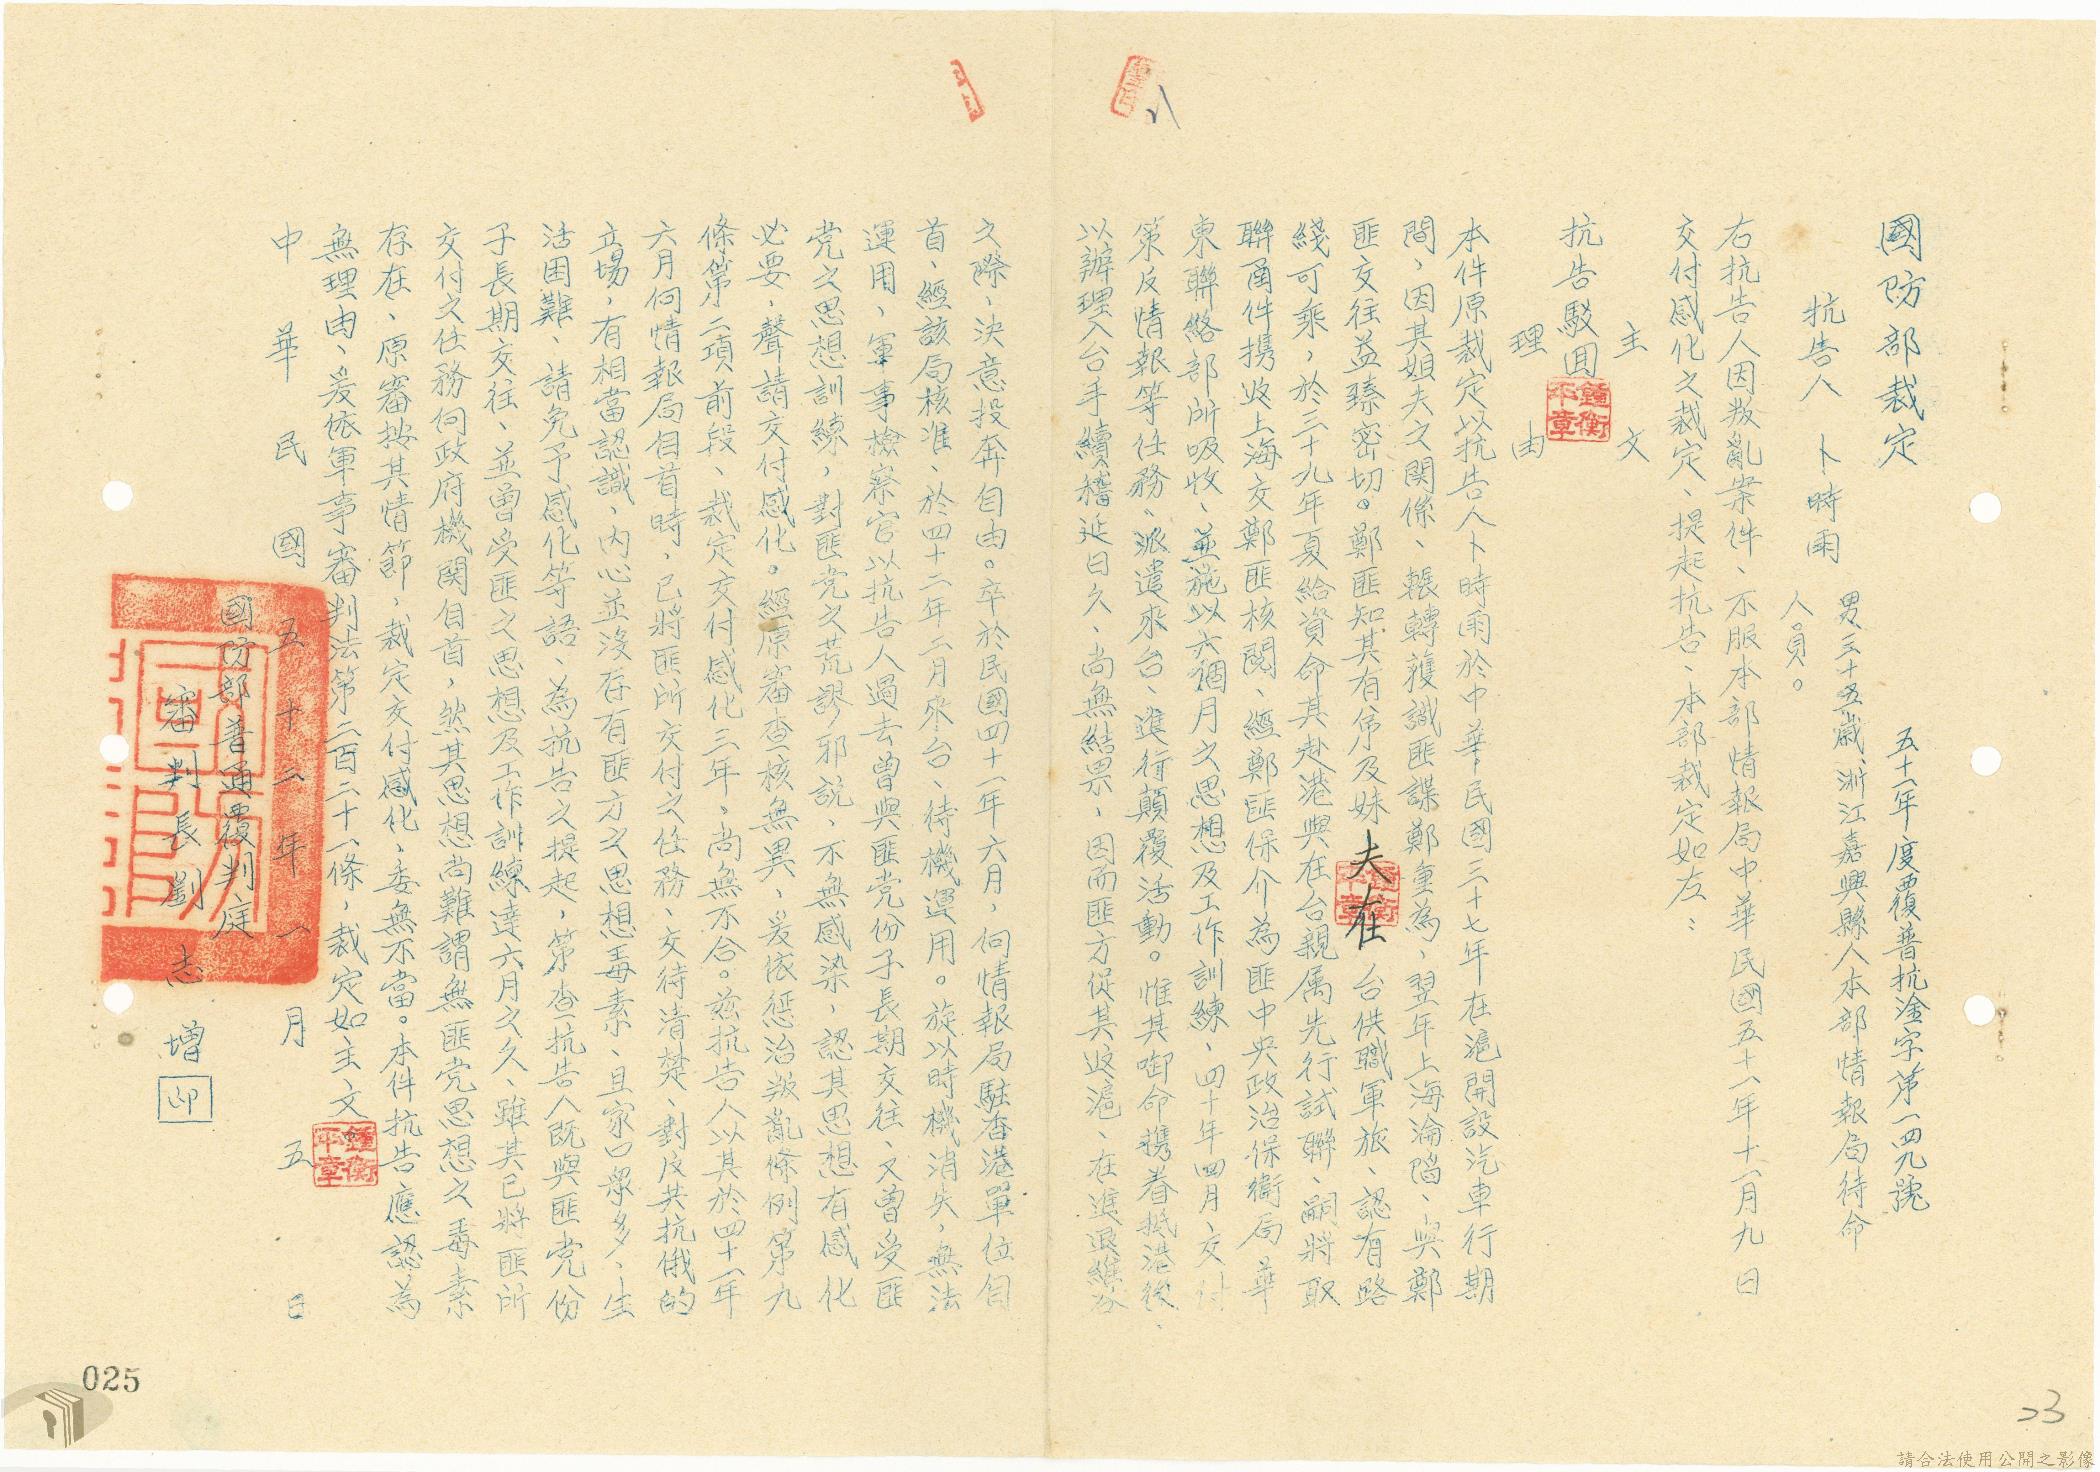 國防部裁定
五十一年度覆普抗淦字第一四九號
抗告人　卜時雨
男三十五歲浙江嘉興縣人本部情報局待命
人員。
右抗告人因叛亂案件、不服本部情報局中華民國五十一年十一月九日
交付感化之裁定、提起抗告、本部裁定如左：
主文
抗告駁回
理由
本件原裁定以抗告人卜時雨於中華民國三十七年在滬開設汽車行期
間，因其姐夫之関係、輾轉獲識匪諜鄭重為、翌年上海淪陷、與鄭
匪交往益臻密切。鄭匪知其有席及妹夫在台供職軍旅、認有路
綫可乘，於三十九年夏給資命其赴港與在台親属先行試聯、嗣將取
聯函件携返上海交鄭匪核閱、經鄭匪保介為匪中央政治保衛局華
東聯絡部所吸收、並施以六個月之思想及工作訓練、四十年四月、交付
策反情報等任務、派遣來台、進行顛覆活動。惟其啣命携眷抵港後、
以辦理入台手續稽延日久、尚無結果，因而匪方促其返滬、在進退維谷
之際、決意投奔自由。卒於民國四十一年六月，向情報局駐香港單位自
首、經該局核准、於四十二年二月來台、待機運用。旋以時機消失，無法
運用，軍事檢察官以抗告人過去曾與匪党份子長期交往、又曾受匪
党之思想訓練，對匪党之荒謬邪說、不無感染，認其思想有感化
必要，聲請交付感化。經原審查核無異，爰依懲治叛亂條例第九
條第二項前段、裁定交付感化三年。尚無不合。茲抗告人以其於四十一年
六月向情報局自首時，已將匪所交付之任務、交待清楚、對反共抗俄的
立場，有相當認識、內心並沒存有匪方之思想毒素、且家口眾多，生
活困難、請免予感化等語、為抗告之提起，第查抗告人既與匪党份
子長期交往、並曾受匪之思想及工作訓練達六月之久、雖其已將匪所
交付之任務向政府機関自首，然其思想尚難謂無匪党思想之毒素
存在、原審按其情節，裁定交付感化，委無不當。本件抗告應認為
無理由、爰依軍事審判法第二百二十一條，裁定如主文
中華民國五十二年一月五日
國防部普通覆判庭
審判長劉志增 印
鍾衡平章
025
23
請合法使用公開之影像